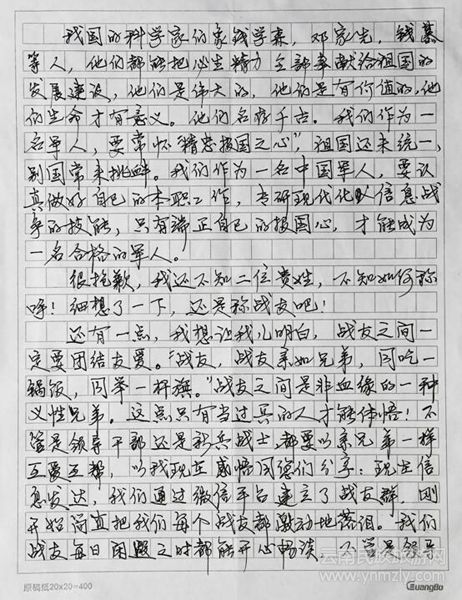 我国的科学家们象钱学森，邓家先，钱慕
等人，他们都能把毕生精力全部奉献给祖国的
发展建设，他们是伟大的，他们是有价值的，他
们的生命才有意义。他们名扬千古。我们作为一
名军人，要常怀“精忠报国之心”，祖国还未统一，
别国常来挑衅。我们作为一名中国军人，要认
真做好自己的本职工作，专研现代化以信息战
争的技能，只有端正自己的报国心，才能成为
一名合格的军人。
很抱歉，我还不知二位贵姓，不知如何称
呼！细想了一下，还是称战友吧！
还有一点，我想让我儿明白，战友之间一
定要团结友爱。“战友，战友亲如兄弟，同吃一
锅饭，同举一杆旗。”战友之间是非血缘的一种
义性兄弟。这点只有当过兵的人才能体悟！不
管是领导干部还是新兵战士，都要以亲兄弟一样
互爱互帮，以我现在感悟同您们分享：现在信
息发达，我们通过微信平台建立了战友群，刚
开始简直把我们每个战友都激动地落泪。我们
战友每日闲暇之时都能开心畅谈，不管是领导
原稿纸20×20=400
GuangBo
云南民族旅游网
www.ynmzly.com